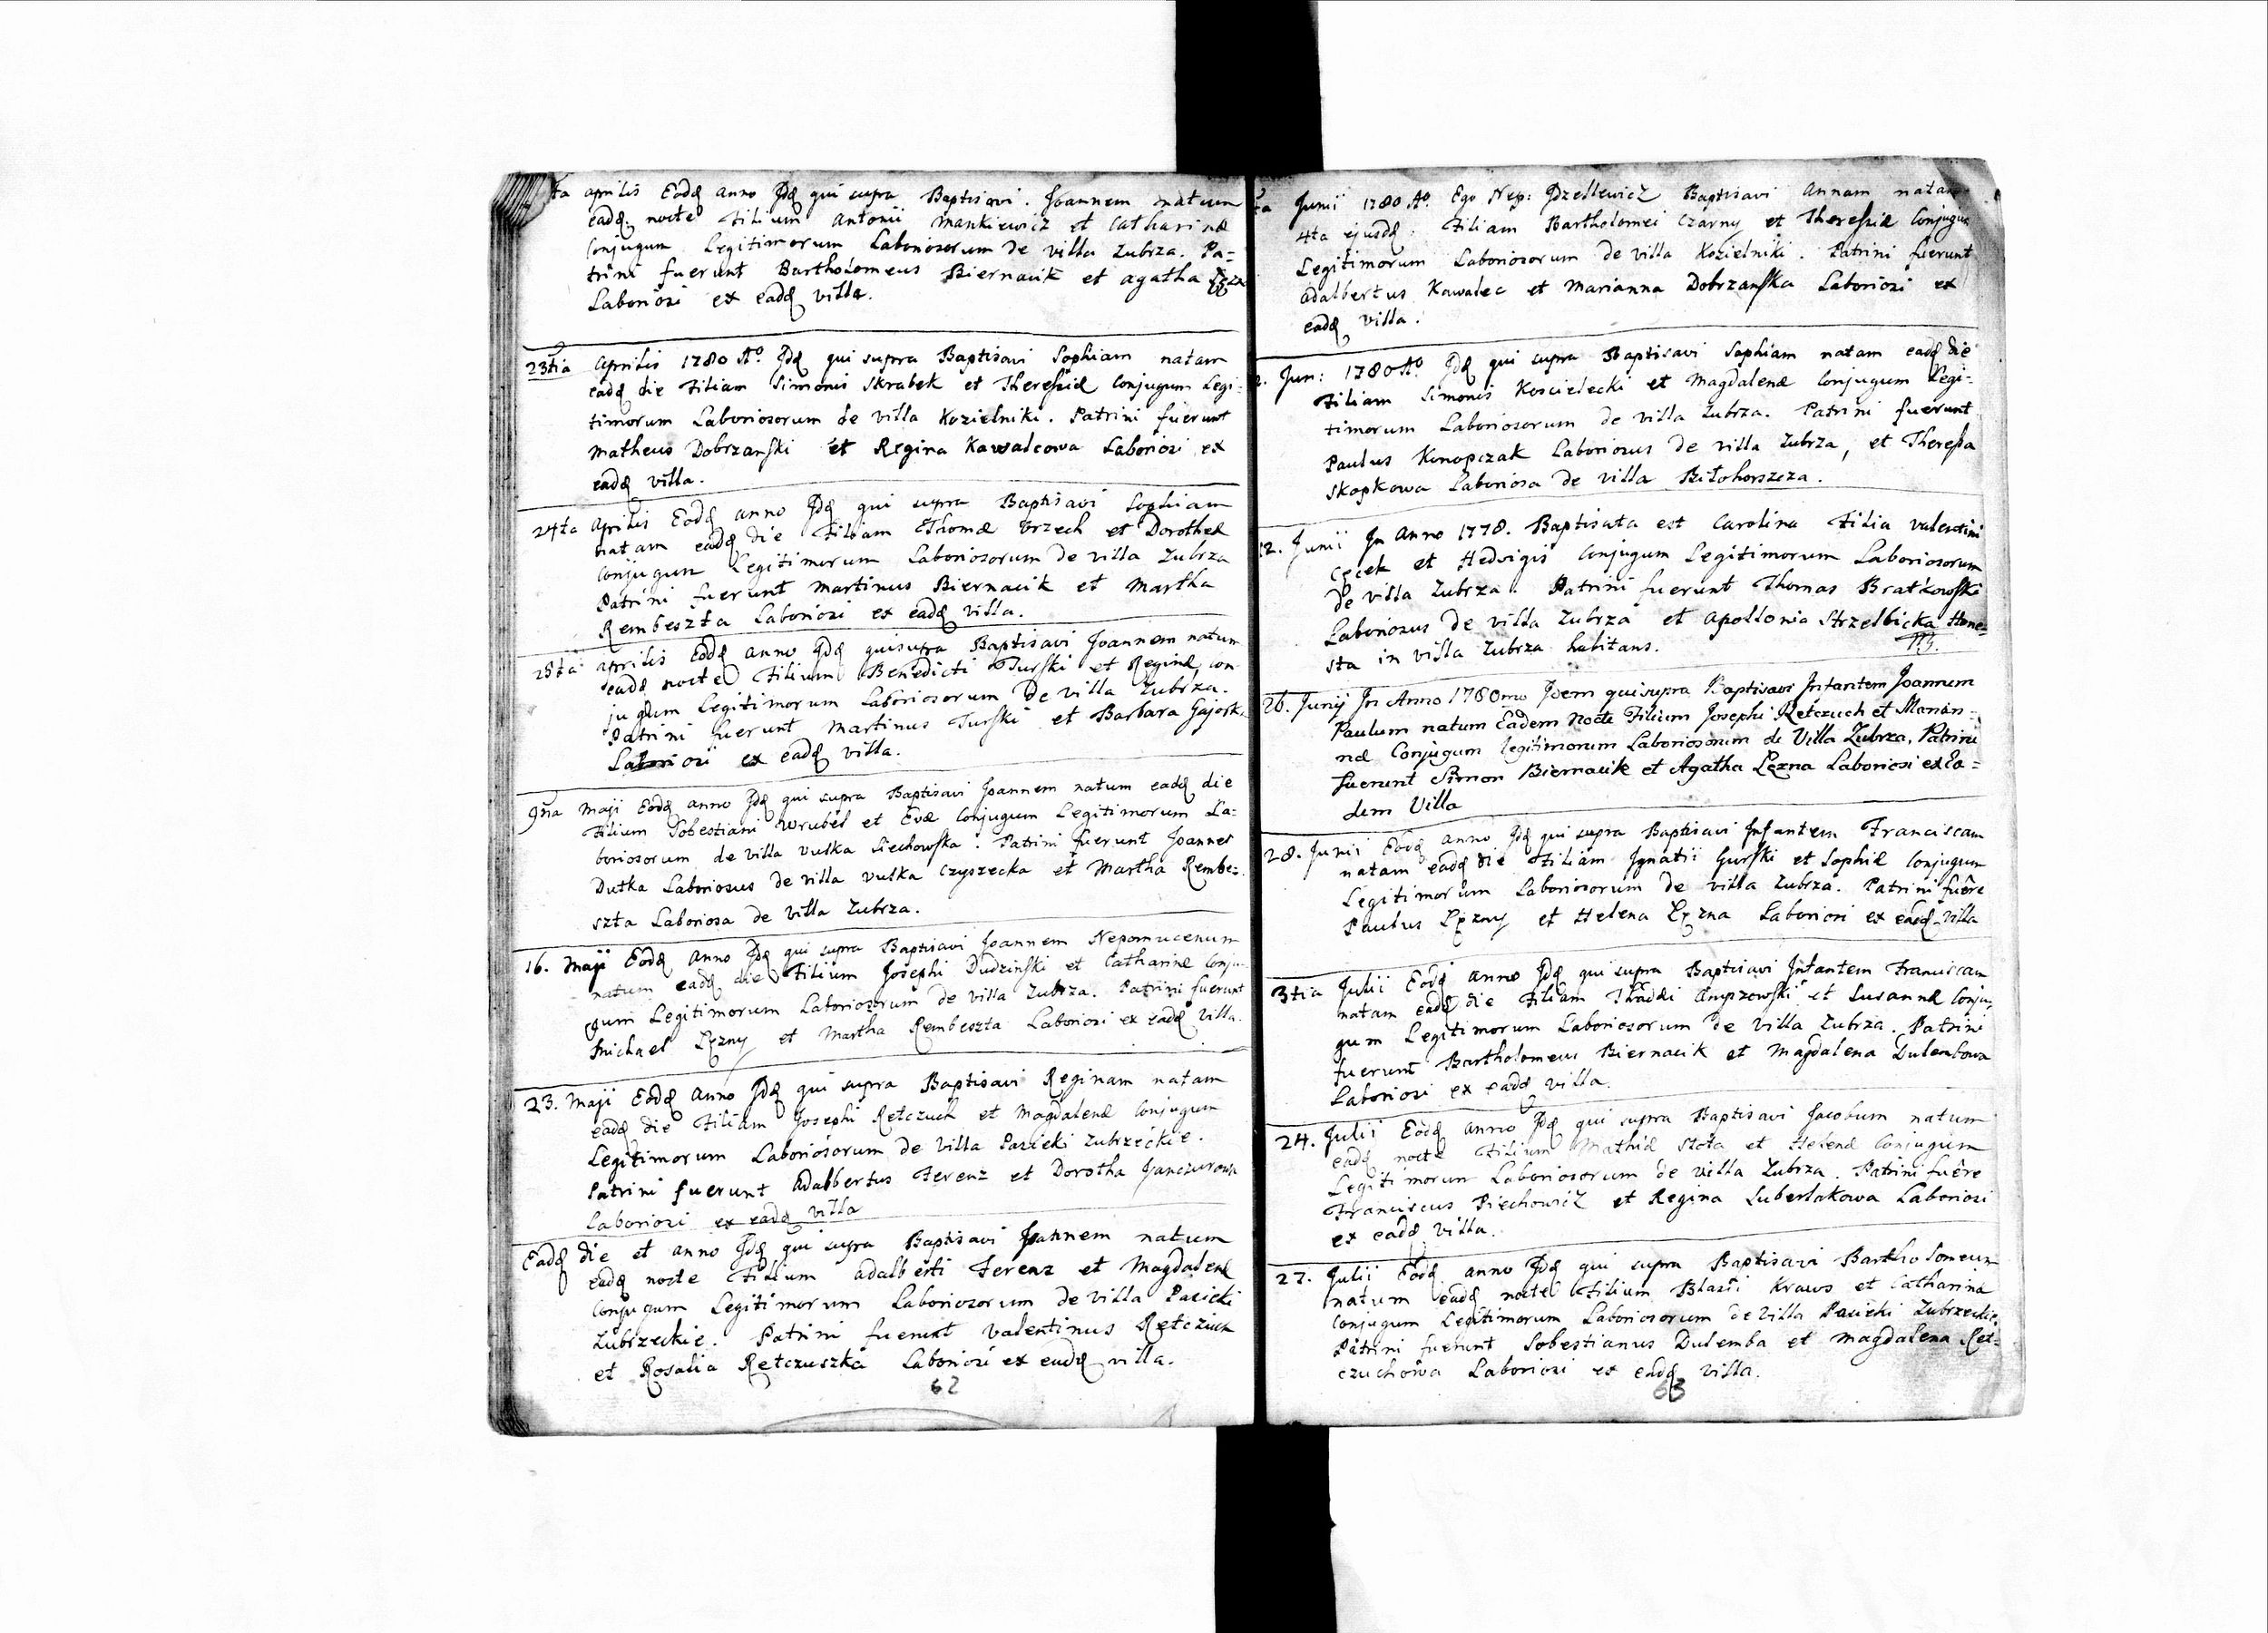 ta aprilis Eodq anno Jdq qui supra Baptisavi. Joannem natum
eadq. nocte Filium Antonii Mankiewicz et Catharinæ
Conjugum Legitimorum Laboriosorum de villa Zubrza. Pa=
trini fuerunt Bartholomeus Biernacik et agatha
Laboriosi ex eadq villa.
23tia Aprilis 1780 Ao. Jdq qui supra Baptisavi Sophiam natam
eadq die Filiam Simonis Skrabek et Theressiæ Conjugum Legi-
timorum Laboriosorum de villa Kozielniki. Patrini fuerunt
Matheus Dobrzanski et Regina Kawalcowa Laboriosi ex
eadq villa.
24ta Aprilis Eodq anno Jdq qui supra Baptisavi Sophiam
natam eadq die Filiam Thomæ Urzech et Dorotheæ
Conjugum Legitimorum Laboriosorum de villa Zubrza
Patrini fuerunt Martinus Biernacik et Martha
Rembeszta Laboriosi ex eadq villa.
28ta aprilis Eodq anno Jdq qui supra Baptisavi Joannem natum
eadq nocte Filium Benedicti Turski et Reginæ Con
jugum Legitimorum Laboriosorum de villa Zubrza.
Patrini fuerunt Martinus Turski et Barbara
Laboriosi ex eadq villa.
9na Maji Eodq anno Jdq qui supra Baptisavi Joannem natum eadq die
Filium Sobestiani Wrubel et Evæ Conjugum Legitimorum La-
boriosorum de villa Vulka Siechowska. Patrini fuerunt Joannes
Dutka Laboriosus de villa Vulka Czyszecka et Martha Rembe=
szta Laboriosa de villa Zubrza.
16. Maji Eodq Anno Jdq qui supra Baptisavi Joannem Nepomucenum
natum eadq die Filium Josephi Dudzinski et Catharinæ Conju-
gum Legitimorum Laboriosorum de villa Zubrza. Patrini fuerunt
Michael Lęzny et Martha Rembeszta Laboriosi ex eadq villa.
23. Maji Eodq Anno Jdq qui supra Baptisavi Reginam natam
eadq die Filiam Josephi Retczuch et Magdalenæ Conjugum
Legitimorum Laboriosorum de Villa Pasieki Zubrzeckie.
Patrini fuerunt Adalbertus Ferenz et Dorotha Janczurowa
Laboriosi ex eadq villa
Eadq die et anno Jdq qui supra Baptisavi Joannem natum
eadq nocte Filium Adalberti Ferenz et Magdalenæ
Conjugum Legitimorum Laboriosorum de villa Pasieki
Zubrzeckie. Patrini fuerunt Valentinus Retczuch
et Rosalia Retczuszka Laboriosi ex eadq villa.
62
ta Junii 1780 Ao. Ego Nep: Dzedlewicz Baptisavi Annam natam
4ta ejusdq. Filiam Bartholomei Czarny et Theressiæ Conjugum
Legitimorum Laboriosorum de villa Kozielniki. Patrini fuerunt
Adalbertus Kawalec et Marianna Dobrzanska Laboriosi ex
eadq villa.
Jun: 1780 Ao. Jdq qui supra Baptisavi Sophiam natam eadq die
Filiam Simonis Koscielecki et Magdalenæ Conjugum Legi-
timorum Laboriosorum de villa Zubrza. Patrini fuerunt
Paulus Konopczak Laboriosus de villa Zubrza, et Theressa
Skopkowa Laboriosa de villa Biłohorszcza.
12. Junii Jn Anno 1778. Baptisata est Carolina Filia Valentini
Cecek et Hedvigis Conjugum Legitimorum Laboriosorum
de villa Zubrza. Patrini fuerunt Thomas Bratkowski
Laboriosus de villa Zubrza et Apollonia Strzelbicka Hone=
sta in villa Zubrza habitans.
26. Junij Jn Anno 1780mo Jdem qui supra Baptisavi Jnfantem Joannem
Paulum natum Eadem Nocte Filium Josephi Retczuch et Marian=
næ Conjugum legitimorum Laboriosorum de Villa Zubrza, Patrini
fuerunt Simon Biernacik et Agatha Lęzna Laboriosi ex Ea=
dem Villa
28. Junii Eodq anno Jdq qui supra Baptisavi Jnfantem Franciscam
natam eadq die Filiam Jgnatii Gurski et Sophiæ Conjugum
Legitimorum Laboriosorum de villa Zubrza. Patrini fuêre
Paulus Lęzny et Helena Lęzna Laboriosi ex eadq villa
3tia Julii Eodq anno Jdq qui supra Baptisavi Jnfantem Franciscam
natam eadq die Filiam Thaddei et Susannæ Conju-
gum Legitimorum Laboriosorum de villa Zubrza. Patrini
fuerunt Bartholomeus Biernacik et Magdalena Dulembowa
Laboriosi ex eadq villa.
24. Julii Eodq anno Jdq qui supra Baptisavi Jacobum natum
eadq nocte Filium Mathiæ Stota et Helenæ Conjugum
Legitimorum Laboriosorum de villa Zubrza. Patrini fuêre
Franciscus Piechowicz et Regina Luberlakowa Laboriosi
ex eadq villa.
27. Julii Eodq anno Jdq qui supra Baptisavi Bartholomeum
natum eadq nocte Filium Blasii Kraws et Catharinæ
Conjugum Legitimorum Laboriosorum de Villa Pasieki Zubrzeckie.
Patrini fuerunt Sobestianus Dulemba et Magdalena Ret-
czuchowa Laboriosi ex eadq villa.
63